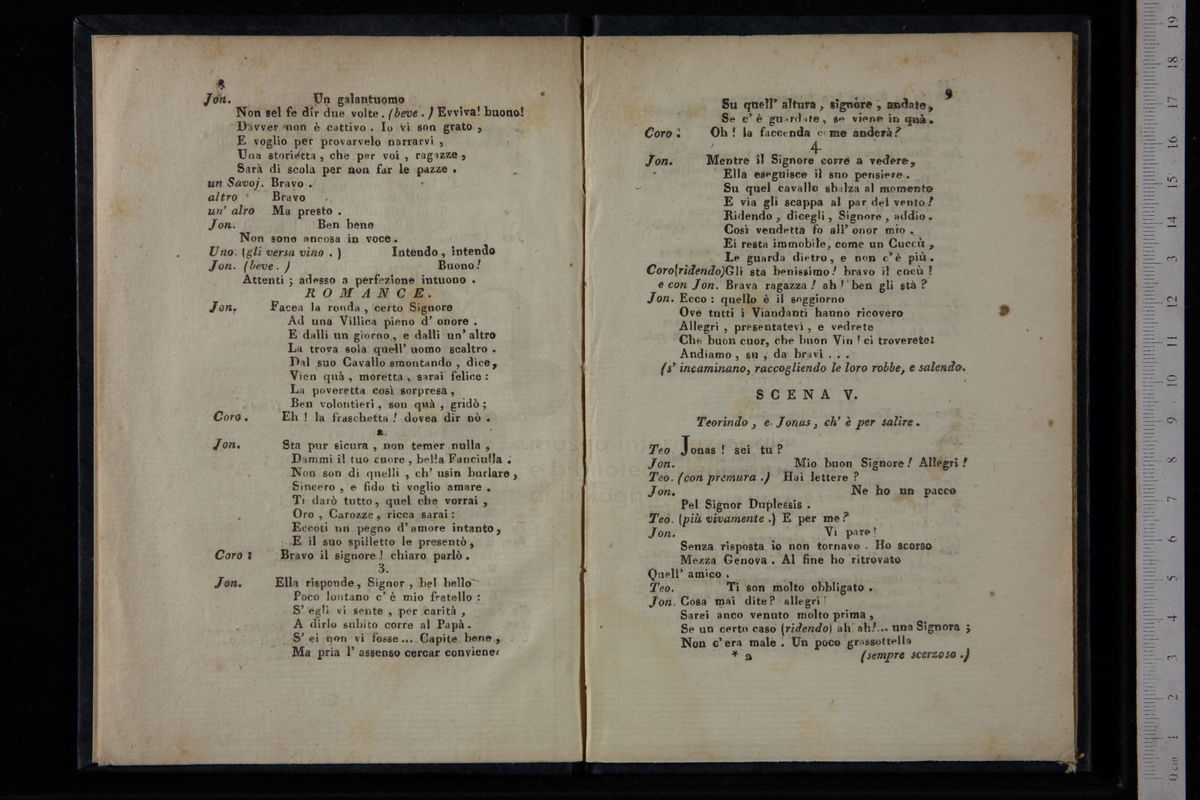 8
Jon. Un galantuomo
Non sel fe dir due volte. (beve.) Evviva! buono!
Davver non è cattivo. Io vi son grato,
E voglio per provarvelo narrarvi,
Una storiétta, che per voi, ragazze,
Sarà di scola per non far le pazze.
un Savoj. Bravo.
altro Bravo
un' alro Ma presto.
Jon. Ben bene
Non sono ancosa in voce.
Uno. (gli versa vino.) Intendo, intendo
Jon. (beve.) Buono!
Attenti; adesso a perfezione intuono.
ROMANCE.
Jon. Facea la ronda, certo Signore
Ad una Villica pieno d' onore.
E dalli un giorno, e dalli un' altro
La trova sola quell' uomo scaltro.
Dal suo Cavallo smontando, dice,
Vien quà, moretta, sarai felice:
La poveretta così sorpresa,
Ben volontieri, son quà, gridò;
Coro. Eh! la fraschetta! dovea dir nò.
2.
Jon. Sta pur sicura, non temer nulla,
Dammi il tuo cuore, bella Fanciulla.
Non son di quelli, ch' usin burlare,
Sincero, e fido ti voglio amare.
Ti darò tutto, quel che vorrai,
Oro, Carozze, ricca sarai:
Eccoti un pegno d' amore intanto,
E il suo spilletto le presentò,
Coro: Bravo il signore! chiaro parlò.
3.
Jon. Ella risponde, Signor, bel bello
Poco lontano c' è mio fratello:
S' egli vi sente, per carità,
A dirlo subito corre al Papà.
S' ei non vi fosse... Capite bene,
Ma pria l' assenso cercar conviene:
9
Su quell' altura, signore, andate,
Se c' è guardate, se viene in quà.
Coro: Oh! la faccenda come anderà?
4.
Jon. Mentre il Signore corre a vedere,
Ella eseguisce il suo pensiere.
Su quel cavallo sbalza al momento
E via gli scappa al par del vento!
Ridendo, dicegli, Signore, addio.
Così vendetta fo all' onor mio.
Ei resta immobile, come un Cuccù,
Le guarda dietro, e non c' è più.
Coro (ridendo) Gli sta benissimo! bravo il cucù!
e con Jon. Brava ragazza! ah! ben gli stà?
Jon. Ecco: quello è il soggiorno
Ove tutti i Viandanti hanno ricovero
Allegri, presentatevi, e vedrete
Che buon cuor, che buon Vin! ci troverete:
Andiamo, su, da bravi...
(s' incaminano, raccogliendo le loro robbe, e salendo.
SCENA V.
Teorindo, e Jonas, ch' è per salire.
Teo Jonas! sei tu?
Jon. Mio buon Signore! Allegri!
Teo. (con premura.) Hai lettere?
Jon. Ne ho un pacco
Pel Signor Duplessis.
Teo. (più vivamente.) E per me?
Jon. Vi pare!
Senza risposta io non tornavo. Ho scorso
Mezza Genova. Al fine ho ritrovato
Quell' amico.
Teo. Ti son molto obbligato.
Jon. Cosa mai dite? allegri!
Sarei anco venuto molto prima,
Se un certo caso (ridendo) ah ah!... una Signora;
Non c' era male. Un poco grassottella
* 2 (sempre scerzoso.)